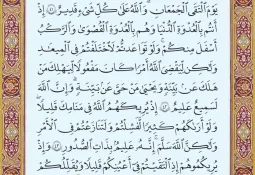 يَوْمَ ٱلْتَقَى ٱلْجَمْعَانِ ۗ وَٱللَّهُ عَلَىٰ كُلِّ شَىْءٍ قَدِيرٌ ۝٤١ إِذْ
أَنتُم بِٱلْعُدْوَةِ ٱلدُّنْيَا وَهُم بِٱلْعُدْوَةِ ٱلْقُصْوَىٰ وَٱلرَّكْبُ
أَسْفَلَ مِنكُمْ ۚ وَلَوْ تَوَاعَدتُّمْ لَٱخْتَلَفْتُمْ فِى ٱلْمِيعَـٰدِ ۙ
وَلَـٰكِن لِّيَقْضِىَ ٱللَّهُ أَمْرًا كَانَ مَفْعُولًا لِّيَهْلِكَ مَنْ
هَلَكَ عَنۢ بَيِّنَةٍ وَيَحْيَىٰ مَنْ حَىَّ عَنۢ بَيِّنَةٍ ۗ وَإِنَّ ٱللَّهَ
لَسَمِيعٌ عَلِيمٌ ۝٤٢ إِذْ يُرِيكَهُمُ ٱللَّهُ فِى مَنَامِكَ قَلِيلًا ۖ
وَلَوْ أَرَىٰكَهُمْ كَثِيرًا لَّفَشِلْتُمْ وَلَتَنَـٰزَعْتُمْ فِى ٱلْأَمْرِ
وَلَـٰكِنَّ ٱللَّهَ سَلَّمَ ۗ إِنَّهُۥ عَلِيمٌۢ بِذَاتِ ٱلصُّدُورِ ۝٤٣ وَإِذْ
يُرِيكُمُوهُمْ إِذِ ٱلْتَقَيْتُمْ فِىٓ أَعْيُنِكُمْ قَلِيلًا وَيُقَلِّلُكُمْ